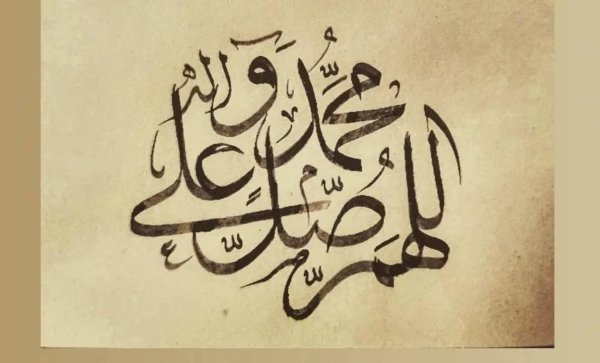 اللهمَّ صَلِّ على
محمَّد وَآله